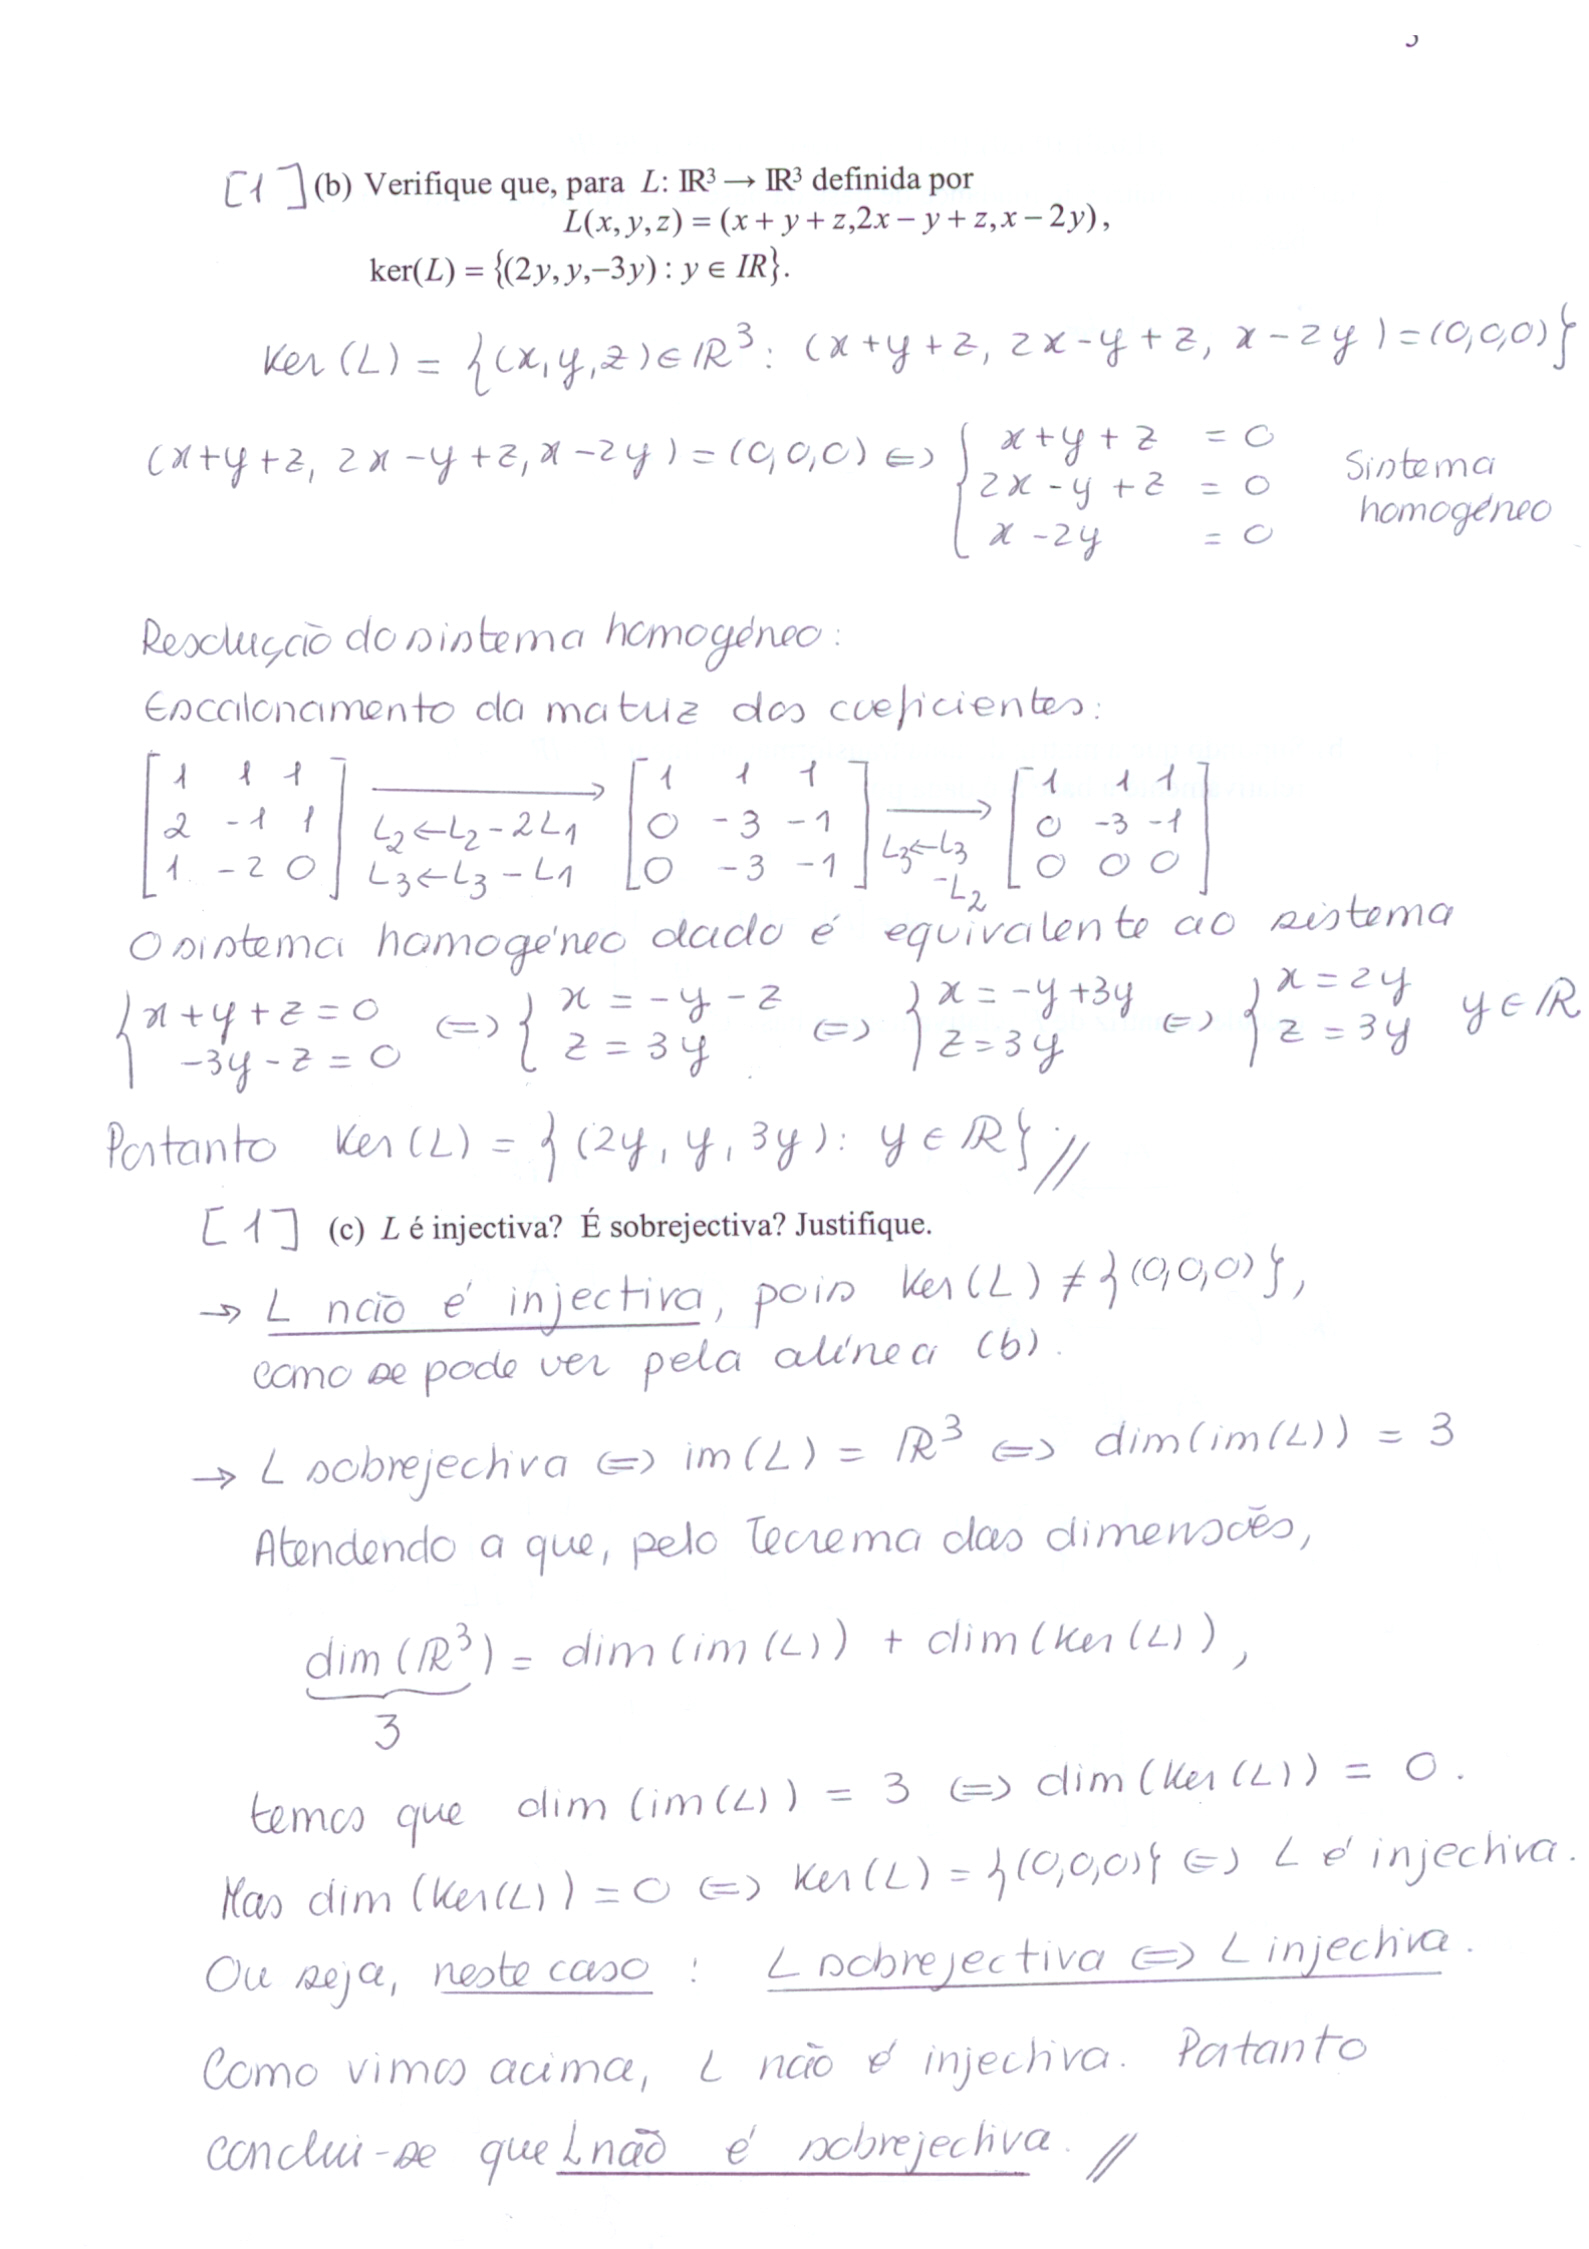 [1] (b) Verifique que, para L: IR³ → IR³ definida por
L(x, y, z) = (x + y + z,2x − y + z, x − 2y),
ker(L) = {(2y, y,−3y) : y ∈ IR}.
Ker (L) = {(x, y, z) ∈ IR³ : (x+y+z, 2x-y+z, x-2y) = (0,0,0)}
(x+y+z, 2x-y+z, x-2y) = (0,0,0) ⇔ { x+y+z = 0
2x-y+z = 0
x-2y = 0
Sistema
homogéneo
Resolução do sistema homogéneo:
Escalonamento da matriz dos coeficientes:
[1 1 1; 2 -1 1; 1 -2 0] → L2←L2-2L1 L3←L3-L1 [1 1 1; 0 -3 -1; 0 -3 -1] → L3←L3-L2 [1 1 1; 0 -3 -1; 0 0 0]
O sistema homogéneo dado é equivalente ao sistema
{ x+y+z=0; -3y-z=0 ⇔ { x = -y-z; z = 3y ⇔ { x = -y+3y; z = 3y ⇔ { x = 2y; z = 3y y ∈ IR
Portanto Ker (L) = {(2y, y, 3y): y ∈ IR}.//
[1] (c) L é injectiva? É sobrejectiva? Justifique.
→ L não é injectiva, pois Ker (L) ≠ {(0,0,0)},
como se pode ver pela alínea (b).
→ L sobrejectiva ⇔ im (L) = IR³ ⇔ dim(im(L)) = 3
Atendendo a que, pelo Teorema das dimensões,
dim (IR³) = dim (im (L)) + dim (Ker (L)),
3
temos que dim (im(L)) = 3 ⇔ dim (Ker (L)) = 0.
Mas dim (Ker(L)) = 0 ⇔ Ker (L) = {(0,0,0)} ⇔ L é injectiva.
Ou seja, neste caso : L sobrejectiva ⇔ L injectiva.
Como vimos acima, L não é injectiva. Portanto
conclui-se que L não é sobrejectiva. //